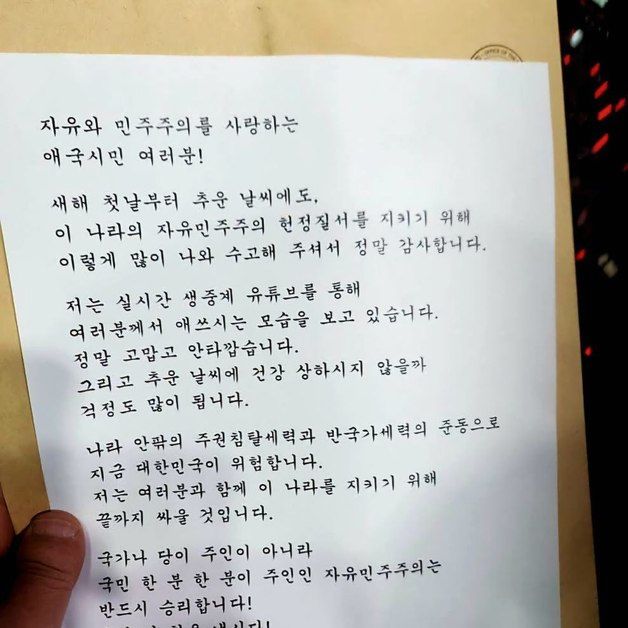 자유와 민주주의를 사랑하는
애국시민 여러분!
새해 첫날부터 추운 날씨에도,
이 나라의 자유민주주의 헌정질서를 지키기 위해
이렇게 많이 나와 수고해 주셔서 정말 감사합니다.
저는 실시간 생중계 유튜브를 통해
여러분께서 애쓰시는 모습을 보고 있습니다.
정말 고맙고 안타깝습니다.
그리고 추운 날씨에 건강 상하시지 않을까
걱정도 많이 됩니다.
나라 안팎의 주권침탈세력과 반국가세력의 준동으로
지금 대한민국이 위험합니다.
저는 여러분과 함께 이 나라를 지키기 위해
끝까지 싸울 것입니다.
국가나 당이 주인이 아니라
국민 한 분 한 분이 주인인 자유민주주의는
반드시 승리합니다!